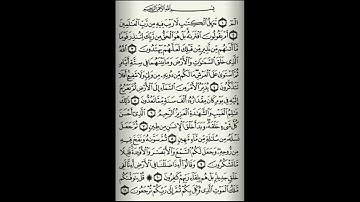 بِسْمِ اللَّهِ الرَّحْمَٰنِ الرَّحِيمِ
الٓمٓ ۝١ تَنزِيلُ الْكِتَٰبِ لَا رَيْبَ فِيهِ مِن رَّبِّ الْعَٰلَمِينَ ۝٢
أَمْ يَقُولُونَ افْتَرَىٰهُ بَلْ هُوَ الْحَقُّ مِن رَّبِّكَ لِتُنذِرَ قَوْمًا
مَّآ أَتَىٰهُم مِّن نَّذِيرٍ مِّن قَبْلِكَ لَعَلَّهُمْ يَهْتَدُونَ ۝٣
اللَّهُ الَّذِى خَلَقَ السَّمَٰوَٰتِ وَالْأَرْضَ وَمَا بَيْنَهُمَا فِى سِتَّةِ أَيَّامٍ
ثُمَّ اسْتَوَىٰ عَلَى الْعَرْشِ مَا لَكُم مِّن دُونِهِۦ مِن وَلِىٍّ وَلَا شَفِيعٍ أَفَلَا تَتَذَكَّرُونَ
۝٤ يُدَبِّرُ الْأَمْرَ مِنَ السَّمَآءِ إِلَى الْأَرْضِ ثُمَّ يَعْرُجُ
إِلَيْهِ فِى يَوْمٍ كَانَ مِقْدَارُهُۥٓ أَلْفَ سَنَةٍ مِّمَّا تَعُدُّونَ ۝٥
ذَٰلِكَ عَٰلِمُ الْغَيْبِ وَالشَّهَٰدَةِ الْعَزِيزُ الرَّحِيمُ ۝٦ الَّذِىٓ أَحْسَنَ
كُلَّ شَىْءٍ خَلَقَهُۥ وَبَدَأَ خَلْقَ الْإِنسَٰنِ مِن طِينٍ ۝٧ ثُمَّ جَعَلَ
نَسْلَهُۥ مِن سُلَٰلَةٍ مِّن مَّآءٍ مَّهِينٍ ۝٨ ثُمَّ سَوَّىٰهُ وَنَفَخَ فِيهِ
مِن رُّوحِهِۦ وَجَعَلَ لَكُمُ السَّمْعَ وَالْأَبْصَٰرَ وَالْأَفْـِٔدَةَ قَلِيلًا
مَّا تَشْكُرُونَ ۝٩ وَقَالُوٓا۟ أَءِذَا ضَلَلْنَا فِى الْأَرْضِ أَءِنَّا لَفِى
خَلْقٍ جَدِيدٍ بَلْ هُم بِلِقَآءِ رَبِّهِمْ كَٰفِرُونَ ۝١٠ قُلْ يَتَوَفَّىٰكُم
مَّلَكُ الْمَوْتِ الَّذِى وُكِّلَ بِكُمْ ثُمَّ إِلَىٰ رَبِّكُمْ تُرْجَعُونَ ۝١١